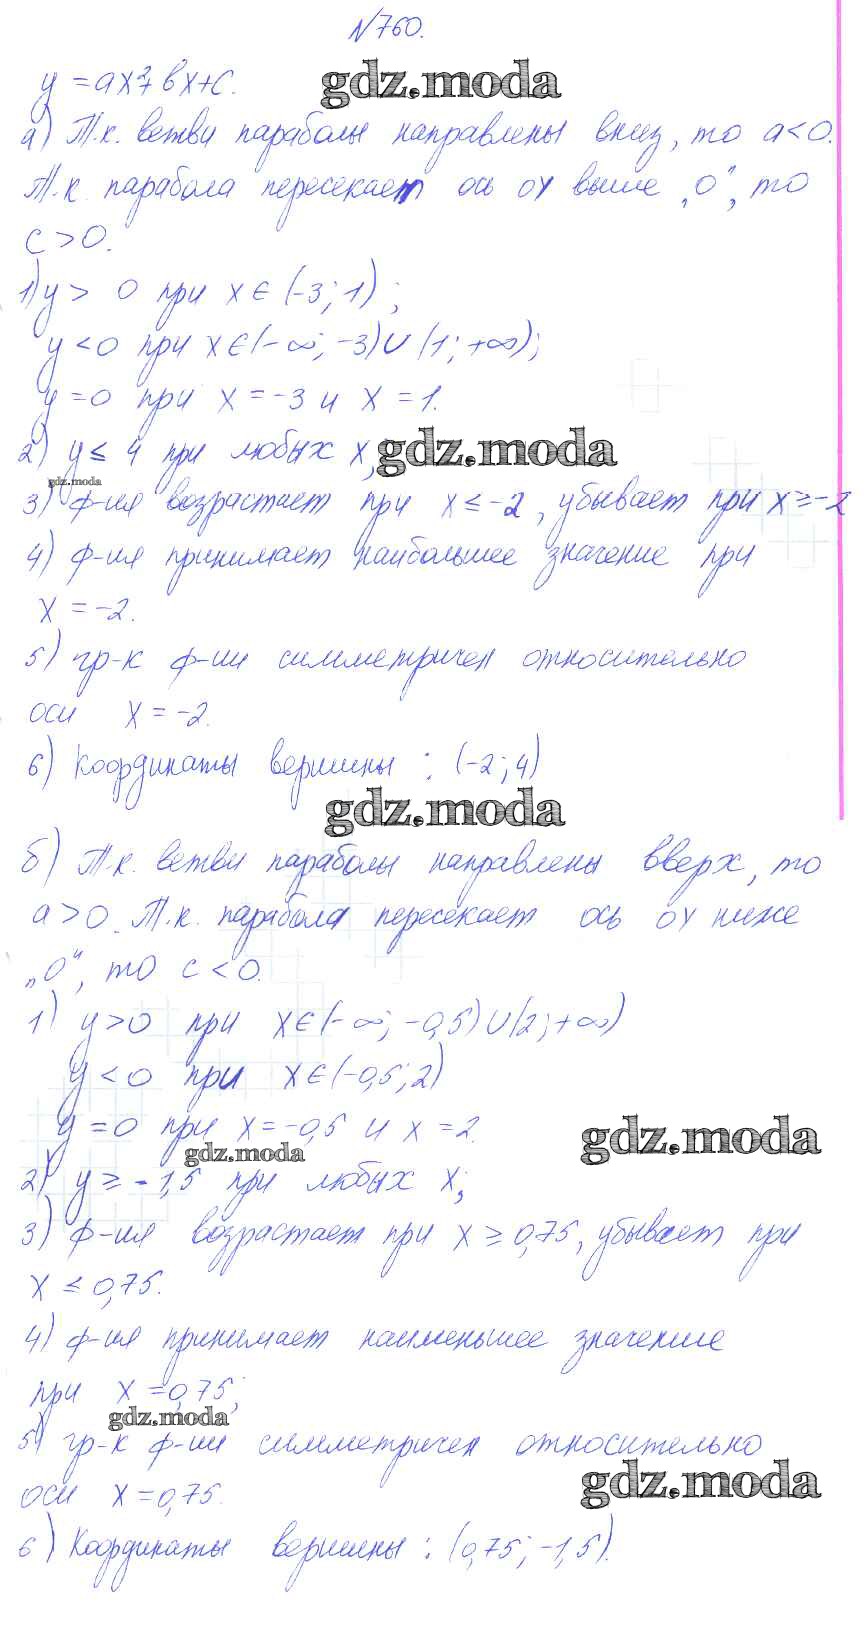 №760.
y = ax²+ вx+c.
gdz.moda
а) Т.к. ветви параболы направлены вниз, то a<0.
Т.к. парабола пересекает ось oy выше „0", то
c >0.
1) y> 0 при x∈(-3; 1);
y<0 при x∈(-∞; -3)∪(1; +∞);
y=0 при x = -3 и x = 1.
2) y≤ 4 при любых x,
gdz.moda
gdz.moda
3) ф-ия возрастает при x≤-2, убывает при x≥-2
4) ф-ия принимает наибольшее значение при
x = -2.
5) гр-к ф-ии симметричен относительно
оси x = -2.
6) Координаты вершины : (-2; 4)
gdz.moda
б) Т.к. ветви параболы направлены вверх, то
a>0. Т.к. парабола пересекает ось oy ниже
„0", то c<0.
1) y>0 при x∈(-∞; -0,5)∪(2;+∞)
y<0 при x∈(-0,5; 2)
y=0 при x=-0,5 и x=2.
gdz.moda
gdz.moda
2) y≥-1,5 при любых x;
3) ф-ия возрастает при x≥0,75, убывает при
x ≤ 0,75.
4) ф-ия принимает наименьшее значение
при x=0,75;
gdz.moda
5) гр-к ф-ии симметричен относительно
оси x=0,75.
gdz.moda
6) Координаты вершины : (0,75; -1,5).